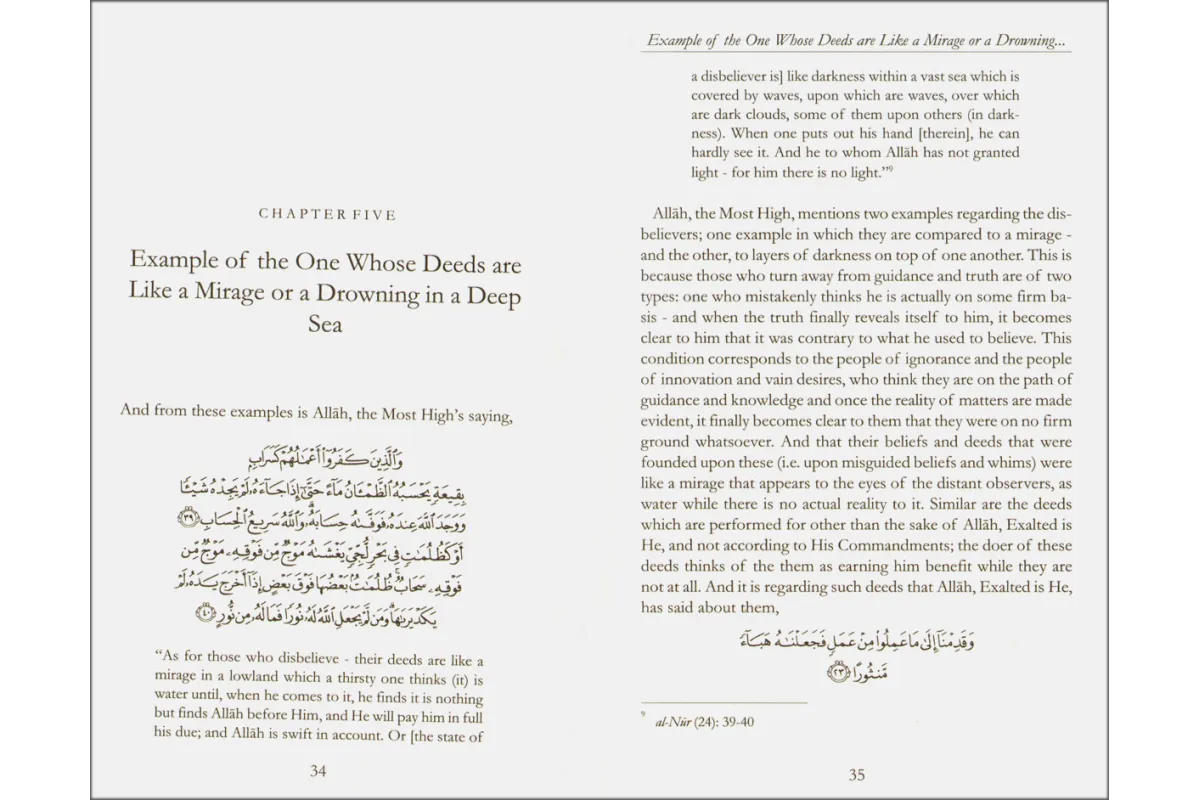 CHAPTER FIVE
Example of the One Whose Deeds are
Like a Mirage or a Drowning in a Deep
Sea
And from these examples is Allāh, the Most High's saying,
وَٱلَّذِينَ كَفَرُوٓا۟ أَعْمَـٰلُهُمْ كَسَرَابٍۭ
بِقِيعَةٍ يَحْسَبُهُ ٱلظَّمْـَٔانُ مَآءً حَتَّىٰٓ إِذَا جَآءَهُۥ لَمْ يَجِدْهُ شَيْـًٔا
وَوَجَدَ ٱللَّهَ عِندَهُۥ فَوَفَّىٰهُ حِسَابَهُۥ ۗ وَٱللَّهُ سَرِيعُ ٱلْحِسَابِ ﴿٣٩﴾
أَوْ كَظُلُمَـٰتٍ فِى بَحْرٍ لُّجِّىٍّ يَغْشَىٰهُ مَوْجٌ مِّن فَوْقِهِۦ مَوْجٌ مِّن
فَوْقِهِۦ سَحَابٌ ۚ ظُلُمَـٰتٌۢ بَعْضُهَا فَوْقَ بَعْضٍ إِذَآ أَخْرَجَ يَدَهُۥ لَمْ
يَكَدْ يَرَىٰهَا ۗ وَمَن لَّمْ يَجْعَلِ ٱللَّهُ لَهُۥ نُورًا فَمَا لَهُۥ مِن نُّورٍ ﴿٤٠﴾
“As for those who disbelieve - their deeds are like a
mirage in a lowland which a thirsty one thinks (it) is
water until, when he comes to it, he finds it is nothing
but finds Allāh before Him, and He will pay him in full
his due; and Allāh is swift in account. Or [the state of
34
Example of the One Whose Deeds are Like a Mirage or a Drowning...
a disbeliever is] like darkness within a vast sea which is
covered by waves, upon which are waves, over which
are dark clouds, some of them upon others (in dark-
ness). When one puts out his hand [therein], he can
hardly see it. And he to whom Allāh has not granted
light - for him there is no light.”⁹
Allāh, the Most High, mentions two examples regarding the dis-
believers; one example in which they are compared to a mirage -
and the other, to layers of darkness on top of one another. This is
because those who turn away from guidance and truth are of two
types: one who mistakenly thinks he is actually on some firm ba-
sis - and when the truth finally reveals itself to him, it becomes
clear to him that it was contrary to what he used to believe. This
condition corresponds to the people of ignorance and the people
of innovation and vain desires, who think they are on the path of
guidance and knowledge and once the reality of matters are made
evident, it finally becomes clear to them that they were on no firm
ground whatsoever. And that their beliefs and deeds that were
founded upon these (i.e. upon misguided beliefs and whims) were
like a mirage that appears to the eyes of the distant observers, as
water while there is no actual reality to it. Similar are the deeds
which are performed for other than the sake of Allāh, Exalted is
He, and not according to His Commandments; the doer of these
deeds thinks of the them as earning him benefit while they are
not at all. And it is regarding such deeds that Allāh, Exalted is He,
has said about them,
وَقَدِمْنَآ إِلَىٰ مَا عَمِلُوا۟ مِنْ عَمَلٍ فَجَعَلْنَـٰهُ هَبَآءً
مَّنثُورًا ﴿٢٣﴾
⁹ al-Nūr (24): 39-40
35